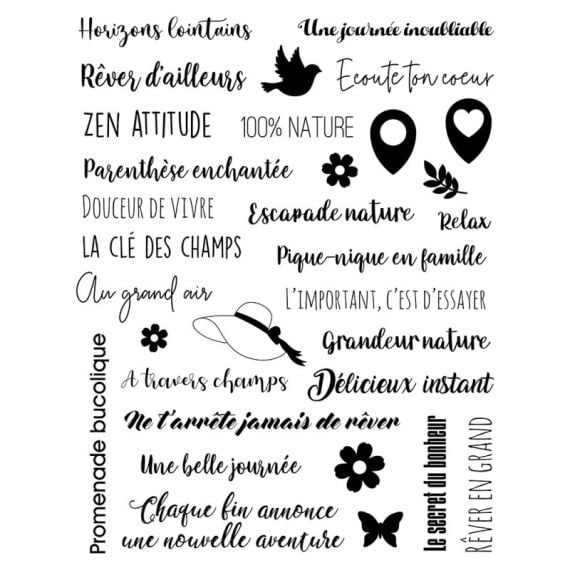 Horizons lointains
Une journée inoubliable
Rêver d'ailleurs
Ecoute ton coeur
ZEN ATTITUDE
100% NATURE
Parenthèse enchantée
DOUCEUR DE VIVRE
Escapade nature
Relax
LA CLÉ DES CHAMPS
Pique-nique en famille
Au grand air
L'IMPORTANT, C'EST D'ESSAYER
Grandeur nature
A travers champs
Délicieux instant
Promenade bucolique
Ne t'arrête jamais de rêver
Une belle journée
le secret du bonheur
RÊVER EN GRAND
Chaque fin annonce
une nouvelle aventure